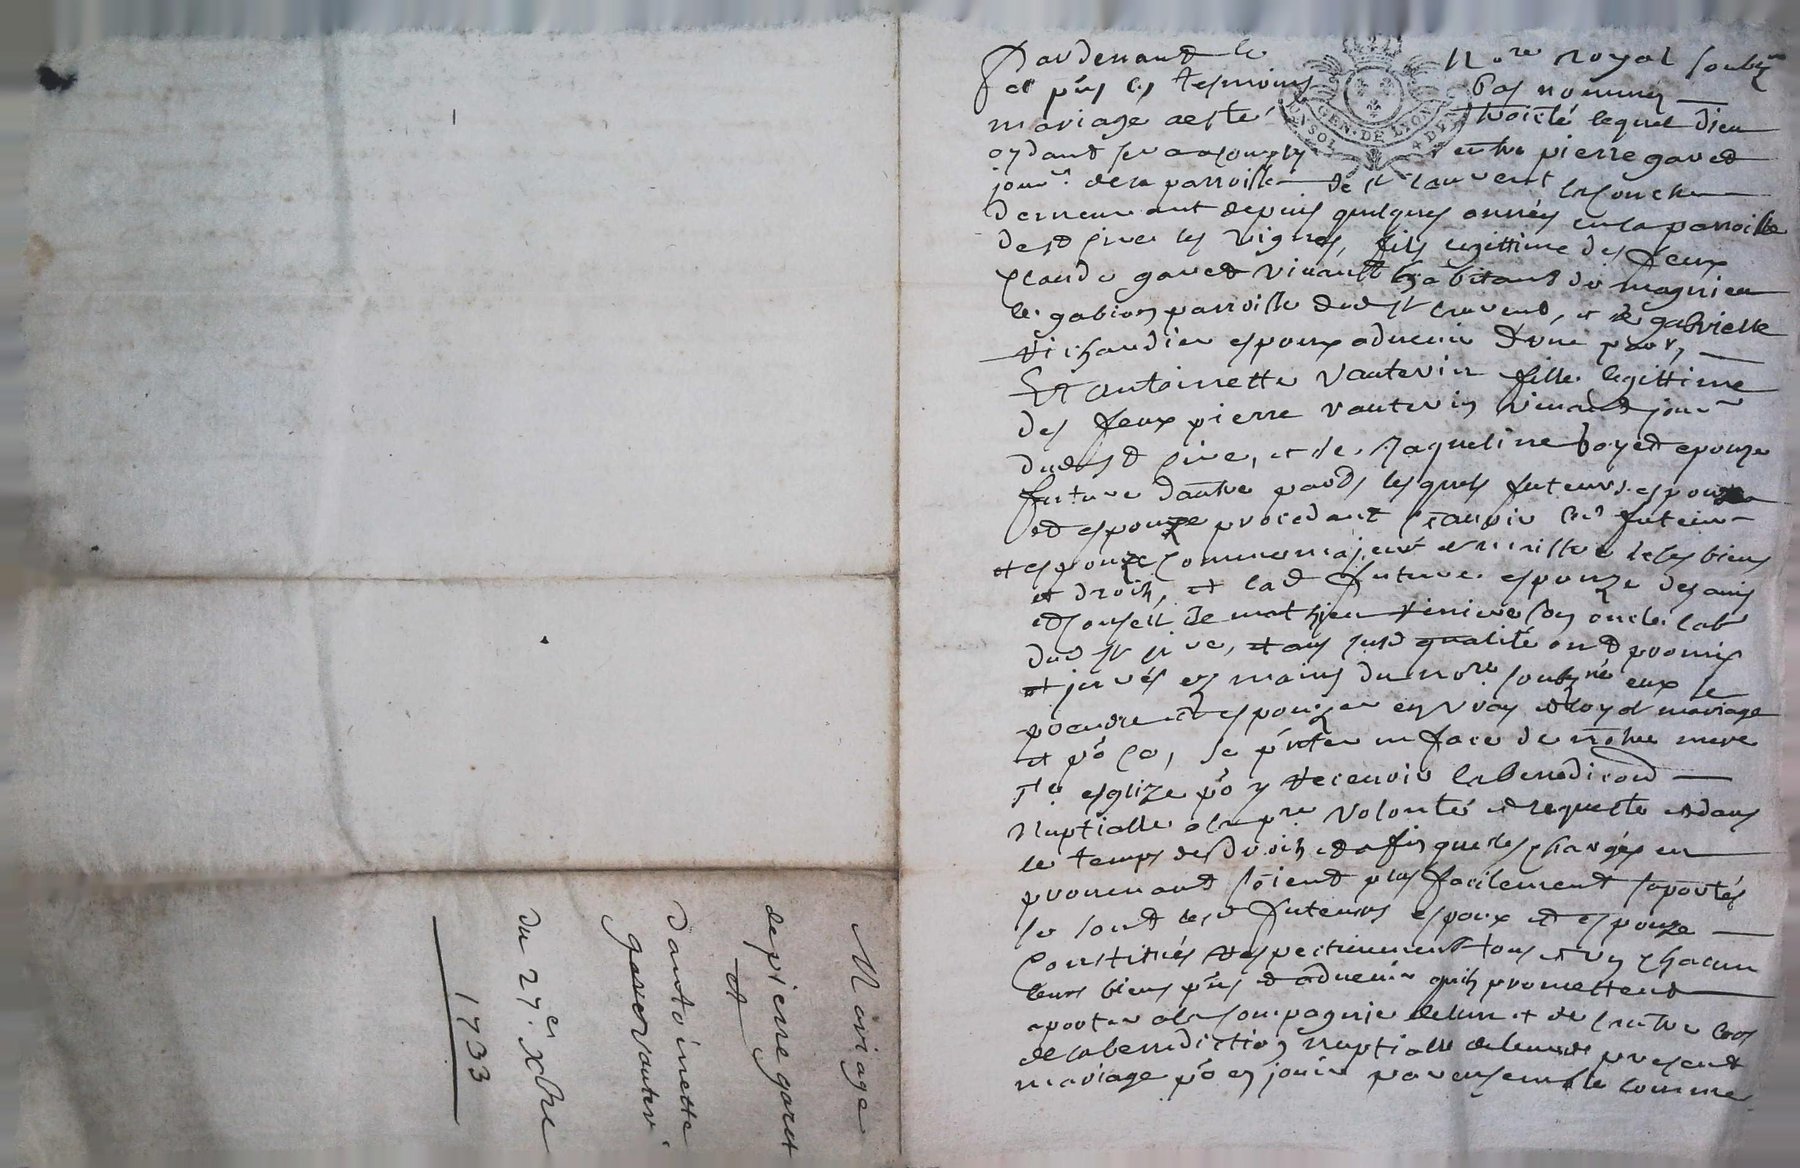 Pardevant le No.re royal soubz.né
et p'ns les tesmoins bas nommés
mariage a esté traicté lequel Dieu
aydant sera acomply entre pierre gavet
jour.er de la parroisse de st laurent la conche
demeurant depuis quelques années en la parroisse
de st sire les vignes, fils legittime des feux
claude gavet vivant habitant de magnieu
le gabion parroisse dud st laurent, et de gabrielle
espoux advenir d'une part,
Et antoinette vauterin fille legittime
des feux pierre vauterin vivant jour.er
dud st sire, et de Jaqueline boyet epouze
future d'autre part, lesquels futeurs espoux
et espouze procedant sçavoir led futeur
espouze comme majeur et maistre de ses biens
et droits, et lad future espouze des avis
et conseil de mathieu son oncle lab
dud st sire, et aux susd qualité ont promis
et jurés ez mains du no.re soubz.né eux se
prendre et espouzer en vray et loyal mariage
et p'o ce, se p'nter en face de notre mere
s.te esglize p'o y recevoir la benediction
Nuptialle a la p.re volonté et requeste et dans
le temps de droit et afin que les charges en
provenant soient plus facilement suportés
se sont lesd futeurs espoux et espouze
Constitués respectivement tous et un chacun
leurs biens p'ns et advenir quils promettent
aporter a la compagnie de lun et de l'autre lors
de la benediction nuptialle de leur present
mariage p'o en jouir par ensemble comme
Mariage
de pierre gavet
et
d'antoinette
vauterin
du 27.e xbre
1733
GEN. DE LYON